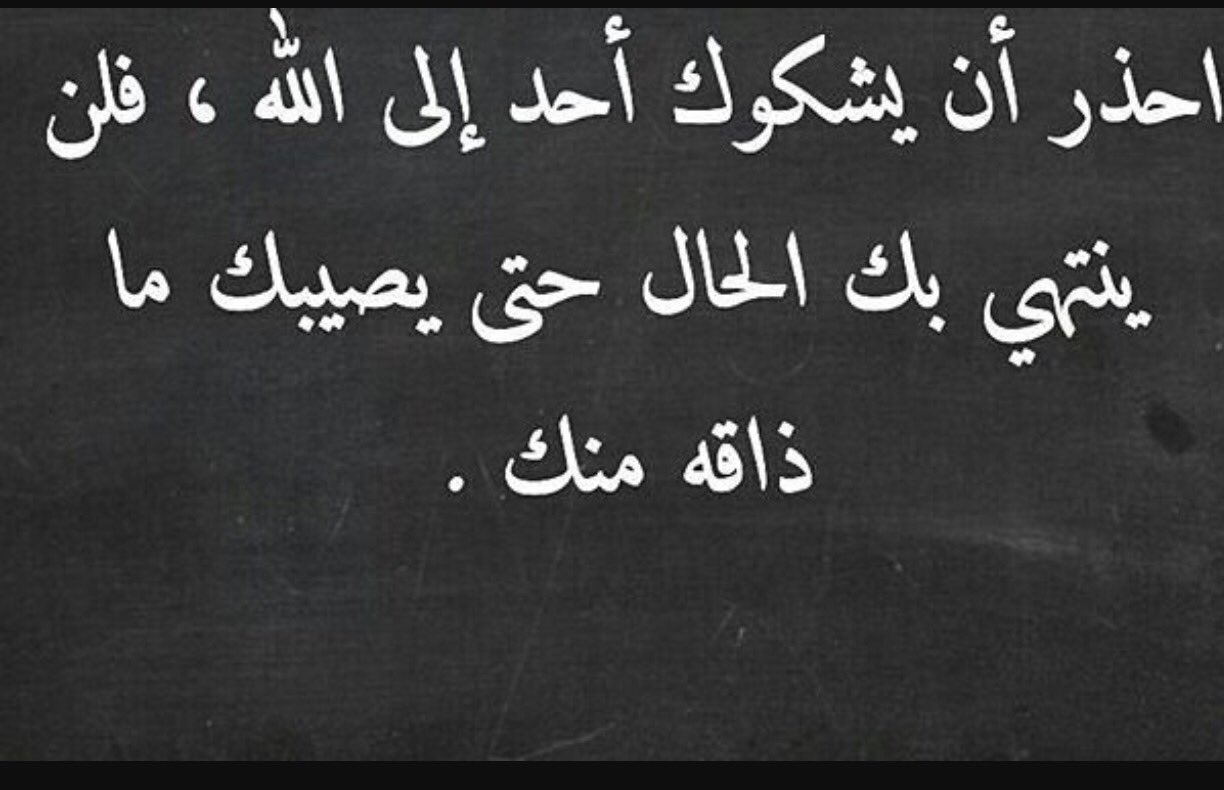 احذر أن يشكوك أحد إلى الله ، فلن
ينتهي بك الحال حتى يصيبك ما
ذاقه منك .